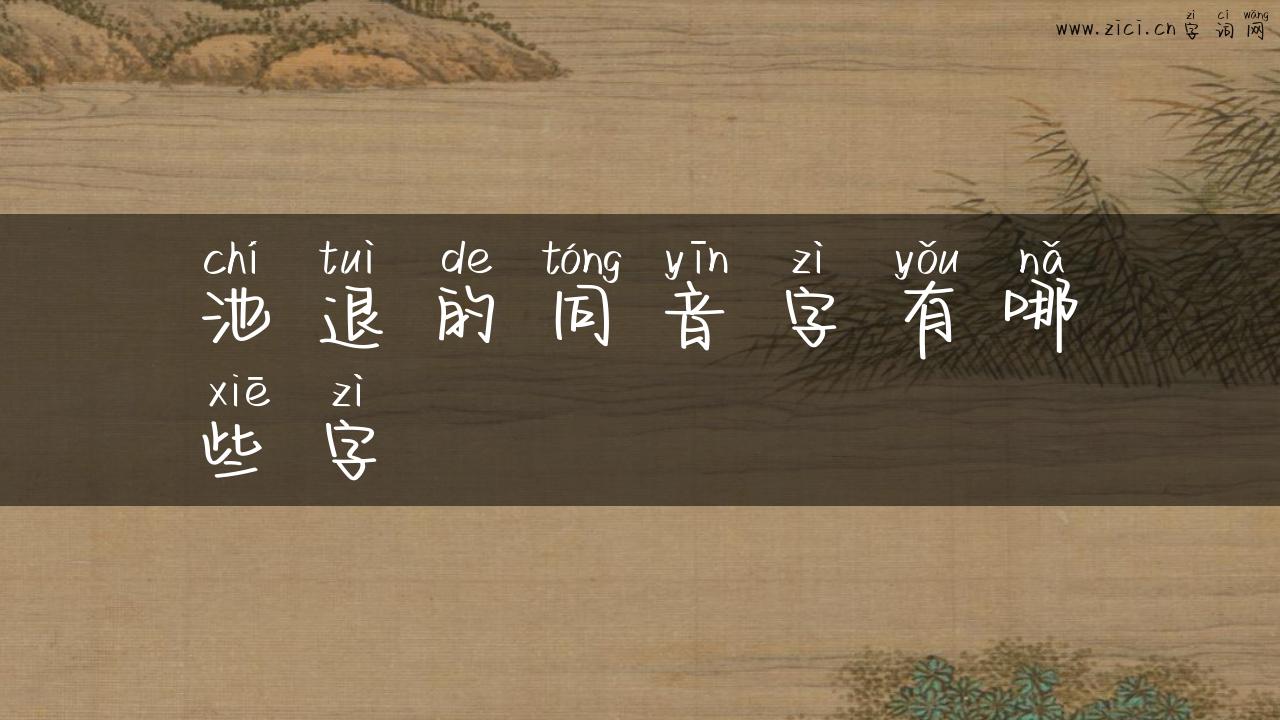 zì cí wǎng
www.zici.cn 字词网
chí tuì de tóng yīn zì yǒu nǎ
池退的同音字有哪
xiē zì
些字